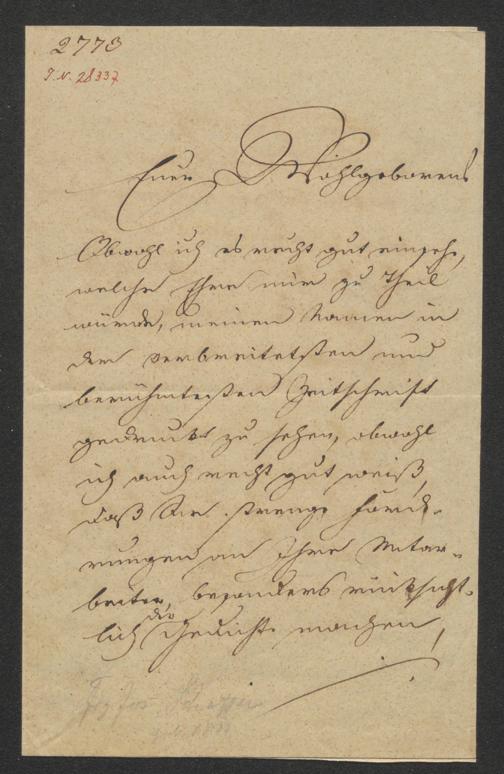 2773
I. N. 28337
Euer Wohlgeboren!
Obwohl ich es recht gut einsehe,
welche Ehre mir zu Theil
würde, meinen Namen in
der verbreitetsten und
berühmtesten Zeitschrift
gedruckt zu sehen, obwohl
ich auch recht gut weiß,
daß Sie strenge Forde-
rungen an Ihre Mitar-
beiter, besonders rücksicht-
lich der Gedichte machen,